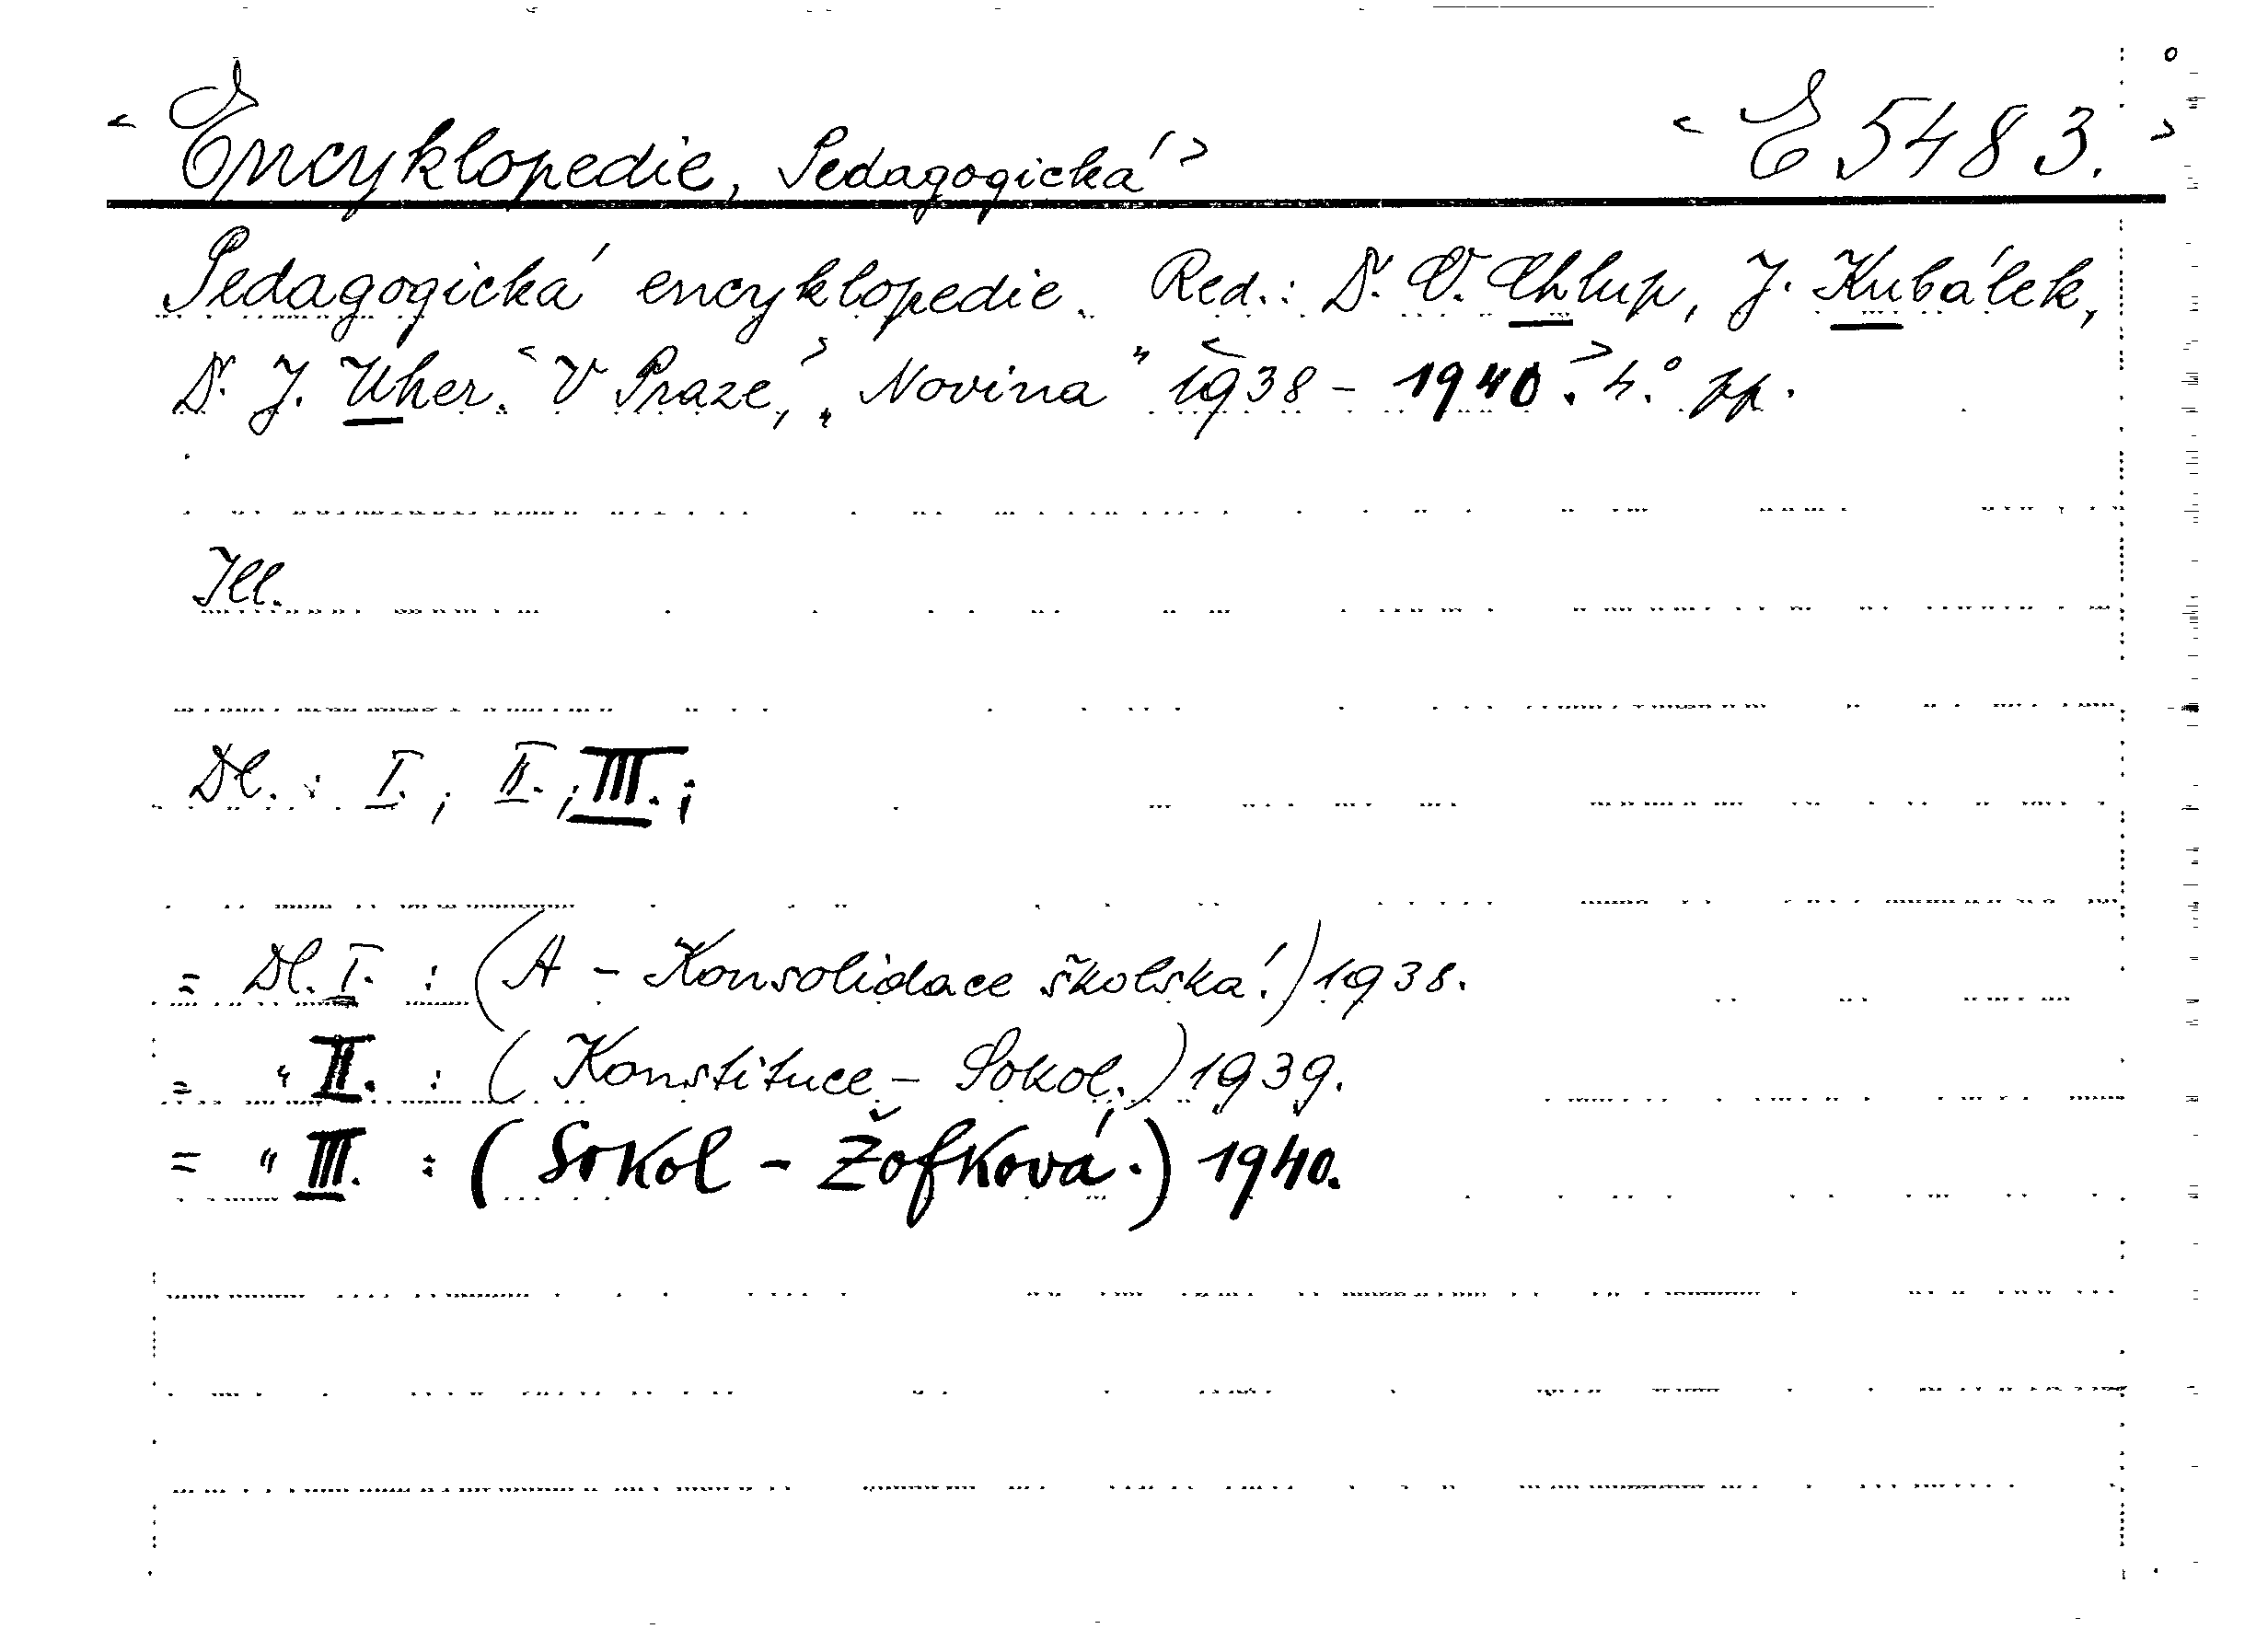 < Encyklopedie, Pedagogická > < E 5483. >
Pedagogická encyklopedie. Red.: Dr. O. Chlup, J. Kubálek,
Dr. J. Uher. < V Praze, > „Novina" < 1938 - 1940. > 4.° pp.
Ill.
Dl. : I. ; II. ; III. ;
= Dl. I. : (A - Konsolidace školská.) 1938.
= " II. : ( Konstituce - Sokol.) 1939.
= " III. : ( Sokol - Žofková.) 1940.